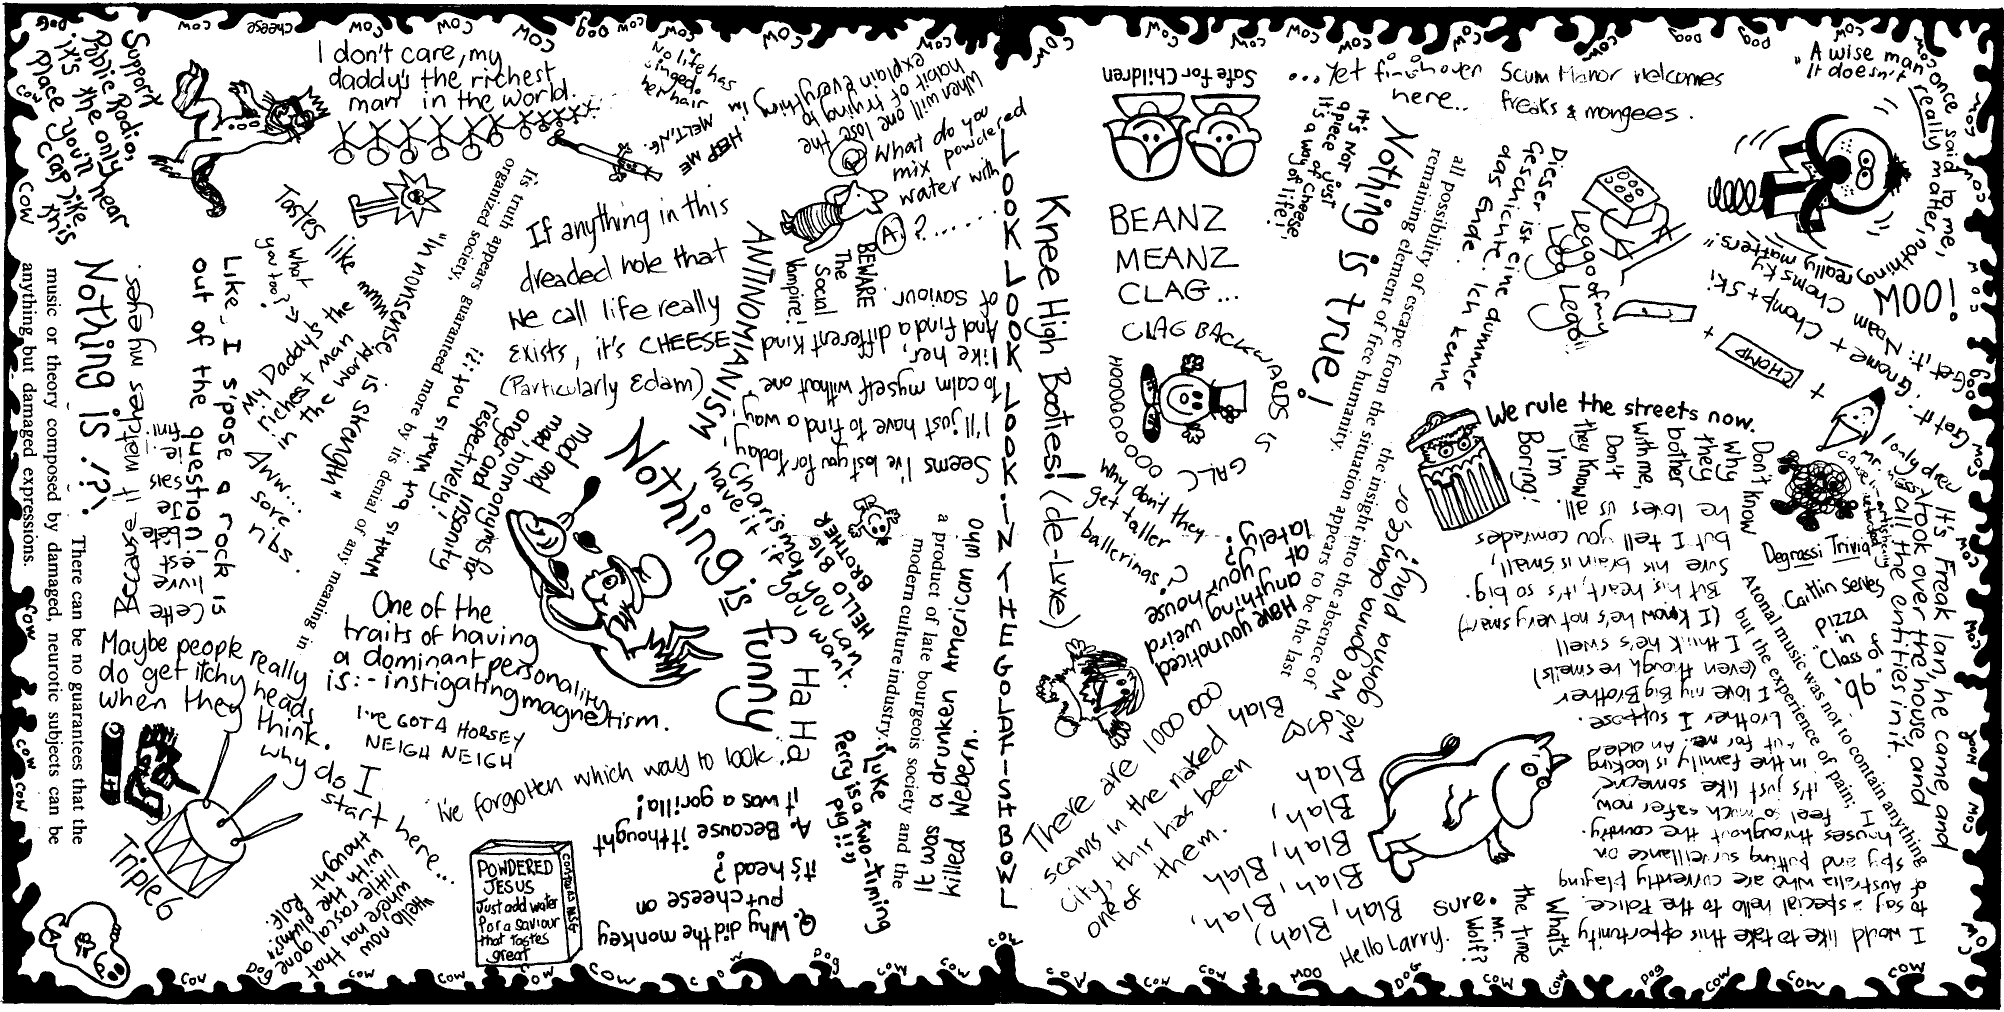 Support
Public Radio,
it's the only
place you'll hear
crap like this
I don't care, my
daddy's the richest
man in the world.
No life has
singed
her hair
HELP ME
I'm
MELTING.
When will one lose the
habit of trying to
explain everything
Q
What do you
mix powdered
water with
A. ?.....
BEWARE
The
Social
Vampire!
Tastes like mmm
What
you too?
My Daddy's the
richest man
in the world.
Aww...
sore
ribs.
"In nonsense is strength"
Its truth appears guaranteed more by its denial of any meaning in
organized society,
If anything in this
dreaded hole that
we call life really
exists, it's CHEESE
(Particularly Edam)
ANTINOMIANISM
Seems I've lost you for today
I'll just have to find a way
To calm myself without one
like her,
And find a different kind
of saviour.
Like, I s'pose a rock is
out of the question!
Nothing is .!?!
Because it matches my eyes.
Cette
livre
est
bete
Je
sais
je
fini
There can be no guarantees that the
music or theory composed by damaged, neurotic subjects can be
anything but damaged expressions.
What is but what's not?!!
mad and
mad, homonyms for
anger and insanity
respectively!
Nothing is funny
Ha Ha Ha
- Charismon you can
have it if you want.
HELLO BIG
BROTHER
One of the
traits of having
a dominant personality
is:- instigating magnetism.
Maybe people really
do get itchy heads
when they think.
why do I
start here...
I'VE GOT A HORSEY
NEIGH NEIGH
I've forgotten which way to look.
Triple G
"Hello now
where has that
little rascal gone
with the plums?"
thought Rolf
POWDERED
JESUS
Just add water
for a saviour
that tastes
great
CONTAINS MSG
Q. Why did the monkey
put cheese on
it's head?
A. Because it thought
it was a gorilla!
Luke
Perry is a two-timing
pig!!!
It was a drunken American who
killed Webern.
a product of late bourgeois society and the
modern culture industry.
LOOK LOOK LOOK LOOK IN THE GOLDFISH BOWL
Knee High Booties! (de-Luxe)
Safe for Children
BEANZ
MEANZ
CLAG...
CLAG BACKWARDS IS
GALC
HOOOOOOOO
Why don't they
get taller
ballerinas?
Have you noticed
anything weird
at your house
lately?
...Yet finish over
here...
Scum Manor welcomes
freaks & mongees.
It's Not just
a piece of cheese,
It's a way of life!
Nothing is true!
all possibility of escape from the situation appears to be the last
remaining element of free humanity.
the insight into the absence of
Dieser ist eine dummer
Geschichte. Ich kenne
das Ende.
Leggo of my
Lego Lego!!
"A wise man once said to me,
"It doesn't really matter, nothing
really matters."
MOO!
Got it: Gnome + Chomp + Ski
Get it: Noam Chomsky
CHOMP
We rule the streets now.
Don't know
why
they
bother
with me,
Don't
they know
I'm
Boring!
Mr. Messy
I only drew
Degrassi Trivia
Caitlin serves
pizza
in
"Class of
'96"
It's Freak Ian, he came and
took over the house, and
all the entities in it.
Atonal music was not to contain anything
but the experience of pain;
I would like to take this opportunity
to say a special hello to the Police
of Australia who are currently playing
spy and putting surveillance on
houses throughout the country.
I feel so much safer now
it's just like someone
in the family is looking
out for me! An added
brother I suppose.
I love my Big Brother
(even though he smells)
I think he's swell
(I know he's not very smart)
But his heart, it's so big.
Sure his brain is small,
but I tell you comrades
he loves us all
We gonna play?
We gonna dance
There are 1000 000
scams in the naked
City, this has been
one of them.
Blah
Blah
Blah,
Blah,
Blah,
Blah,
Blah
Blah,
Blah,
Blah,
Blah,
Hello Larry.
sure.
What's
the time
Mr.
Wolf?
cow
Dog
cheese
moo